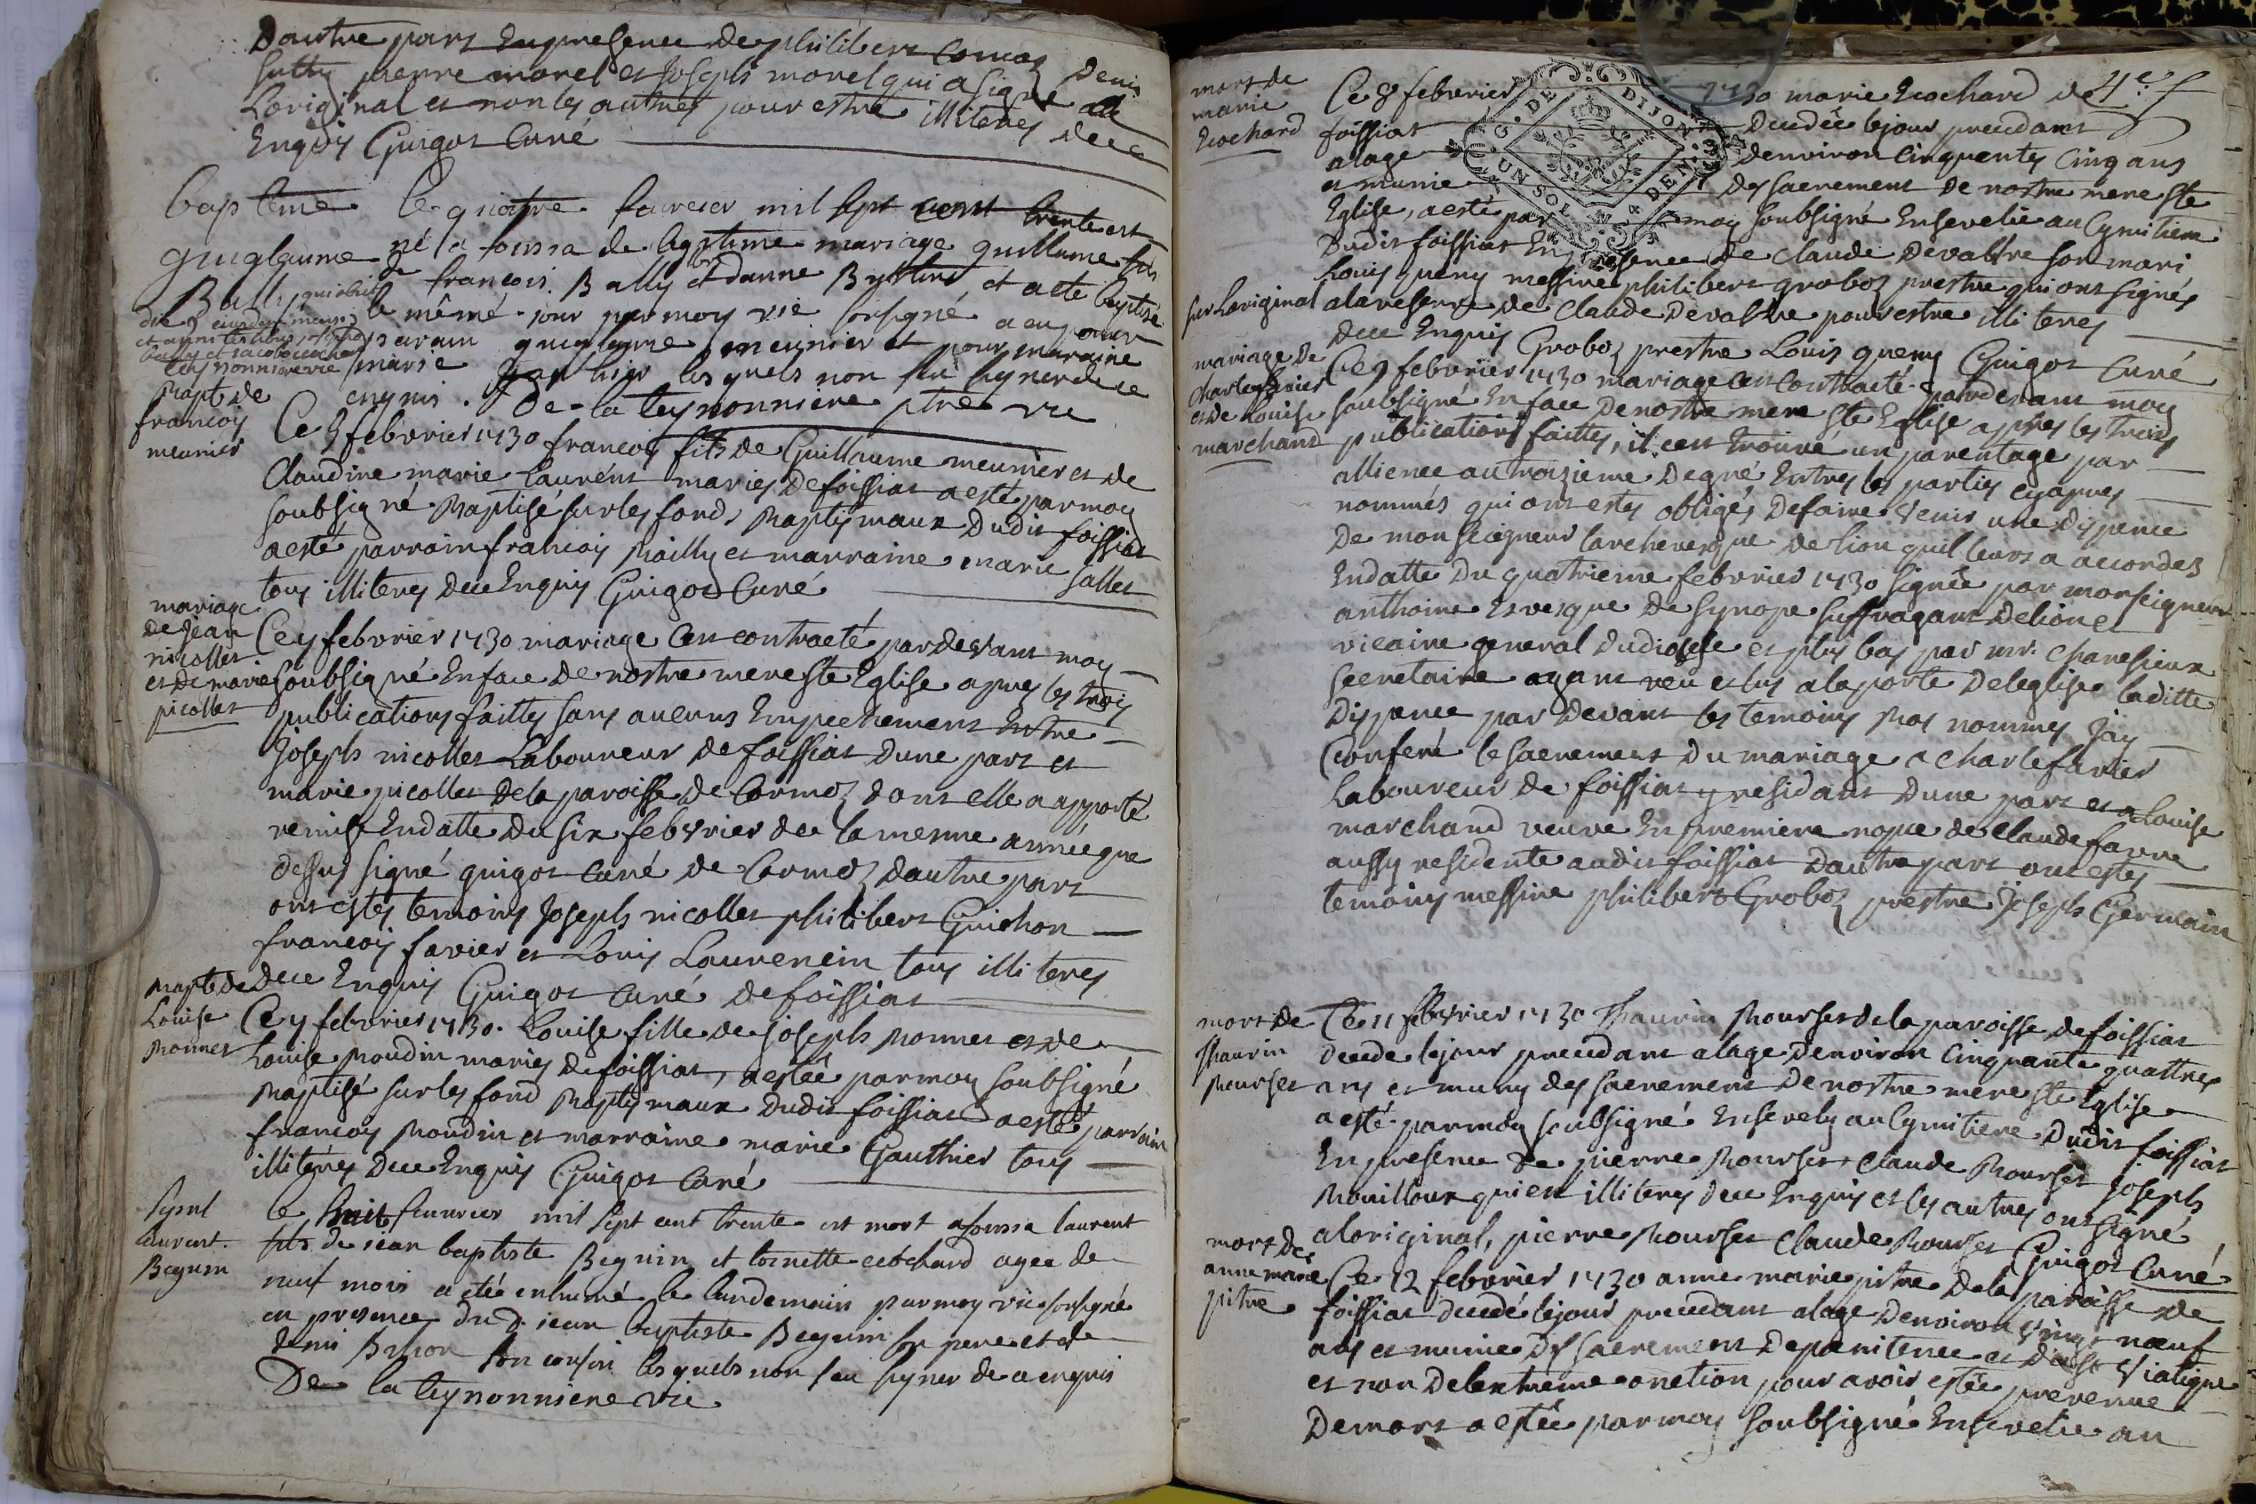 Dautre part En presence de philibert Comaz Denis
puthy pierre morel et Joseph morel qui a signé a
Loriginal et non les autres pour estre illiterés de ce
Enquis Guigot Curé
baptême
guglaume
Bally
le quatre feuvrier mil sept cent trente est
né a foissia de legitime mariage guillaume fils
de françois Bally et danne et a eté baptisé
le même jour par moy vic sousigné a eu pour
parain guglaume meunier et pour maraine
marie lesquels non seu signer de ce
enquis. De la teynonniere ptre vic
Bapt de
francois
meunier
Ce 5 febvrier 1730 francois fils de Guillaume meunier et de
Claudine marie Laurent mariés de foissiat a esté par moy
soubsigné Baptisé sur les fonds Baptismaux Dudit foissiat
a esté parrain francois Bailly et marraine marie Sallet
tous illiterés De ce Enquis Guigot Curé
mariage
De Jean
nicollet
et De marie
picollet
Ce 7 febvrier 1730 mariage a est contracté par devant moy
soubsigné En face De nostre mere Ste Eglise apres les trois
publications faittes sans aucuns Empechement Entre
Joseph nicollet Laboureur de foissiat Dune part et
marie picollet De la paroisse De Cormoz dont elle a apporté
remise En datte Du six febvrier de la mesme année que
dessus signé guigot curé de Cormoz Dautre part
ont estés temoins Joseph nicollet philibert Guichon
francois favier et Louis Laurencin tous illiterés
De ce Enquis Guigot Curé de foissiat
Bapt De
Louise
Monnet
Ce 7 febvrier 1730. Louise fille de Joseph Monnet et de
Louise Moudin mariés de foissiat, a estée par moy soubsigné
Baptisé sur les fond Baptismaux Dudit foissiat a esté parrain
francois Moudin et marraine marie Gauthier tous
illiterés De ce Enquis Guigot Curé
laurent
Beguin
le huit feuvrier mil sept cent trente est mort a foissia laurent
fils de jean baptiste Beguin et toinette cochard agee de
neuf mois a eté enhumé le landemain par moy vic sousigné
en presence du d. jean baptiste Beguin son pere et de
denis son cousin lesquels non seu signer de ce enquis
De la teynonniere vic
mort de
marie
Ecochard
Ce 8 febvrier 1730 marie Ecochard de
foissiat Decedée le jour precedant
a lage denviron cinquentes cinq ans
et munie Des sacrement de nostre mere Ste
Eglise, a esté par moy soubsigné Ensevelie au Cymitiere
Dudit foissiat En presence de Claude Devaltre son mari
Louis queny messire philibert groboz prestre qui ont signés
sur Loriginal a la reserve de Claude Devaltre pour estre illiterés
De ce Enquis Groboz prestre Louis queny Guigot Curé
mariage De
Charle favier
et De Louise
marchand
Ce 9 febvrier 1730 mariage a est contracté par devant moy
soubsigné En face De nostre mere Ste Eglise apres les trois
publications faittes, il cest trouvé un parentage par
allience au troizieme Degré Entres les parties cy apres
nommés qui ont estés obligés De faire venir une dispence
De monseigneur Larchevesque de lion quil leurs a accordez
En datte Du quatrieme febvrier 1730 signée par monseigneur
anthoine Evesque De Synope suffragant De lion et
vicaire general Dudiocesse et plus bas par mr. Charesieux
secretaire ayant veu et lus a la porte De leglise laditte
Dispence par Devant les temoins Bas nommés Jay
Conferé le sacrement Du mariage a Charle favier
Laboureur de foissiat y residant Dune part et a Louise
marchand veuve En premiere nopce de Claude favre
aussy residente audit foissiat Dautre part ont estés
temoins messire philibert Groboz prestre Joseph Germain
mort De
Thaurin
Mourset
Ce 11 febvrier 1730 Thaurin Mourset de la paroisse de foissiat
Decede le jour precedant a lage Denviron Cinquante quattres
ans et muny des sacrement De nostre mere Ste Eglise
a esté par moy soubsigné Ensevely au Cymitiere Dudit foissiat
En presence De pierre Mourset Claude Mourset Joseph
Mouilloux qui est illiterés De ce Enquis et les autres ont signé
a loriginal, pierre Mourset Claude Mourset Guigot Curé
mort De
anne marie
pitre
Ce 12 febvrier 1730 anne marie pitre De la paroisse de
foissiat decedé le jour precedant a lage Denviron vingt nœuf
ans et munie Des sacrement De penitence et Du St Viatique
et non De lextreme onction pour avoir estée prevenue
De mort a estée par moy soubsigné Ensevelie au
G. DE DIJON
UN SOL 4 DEN